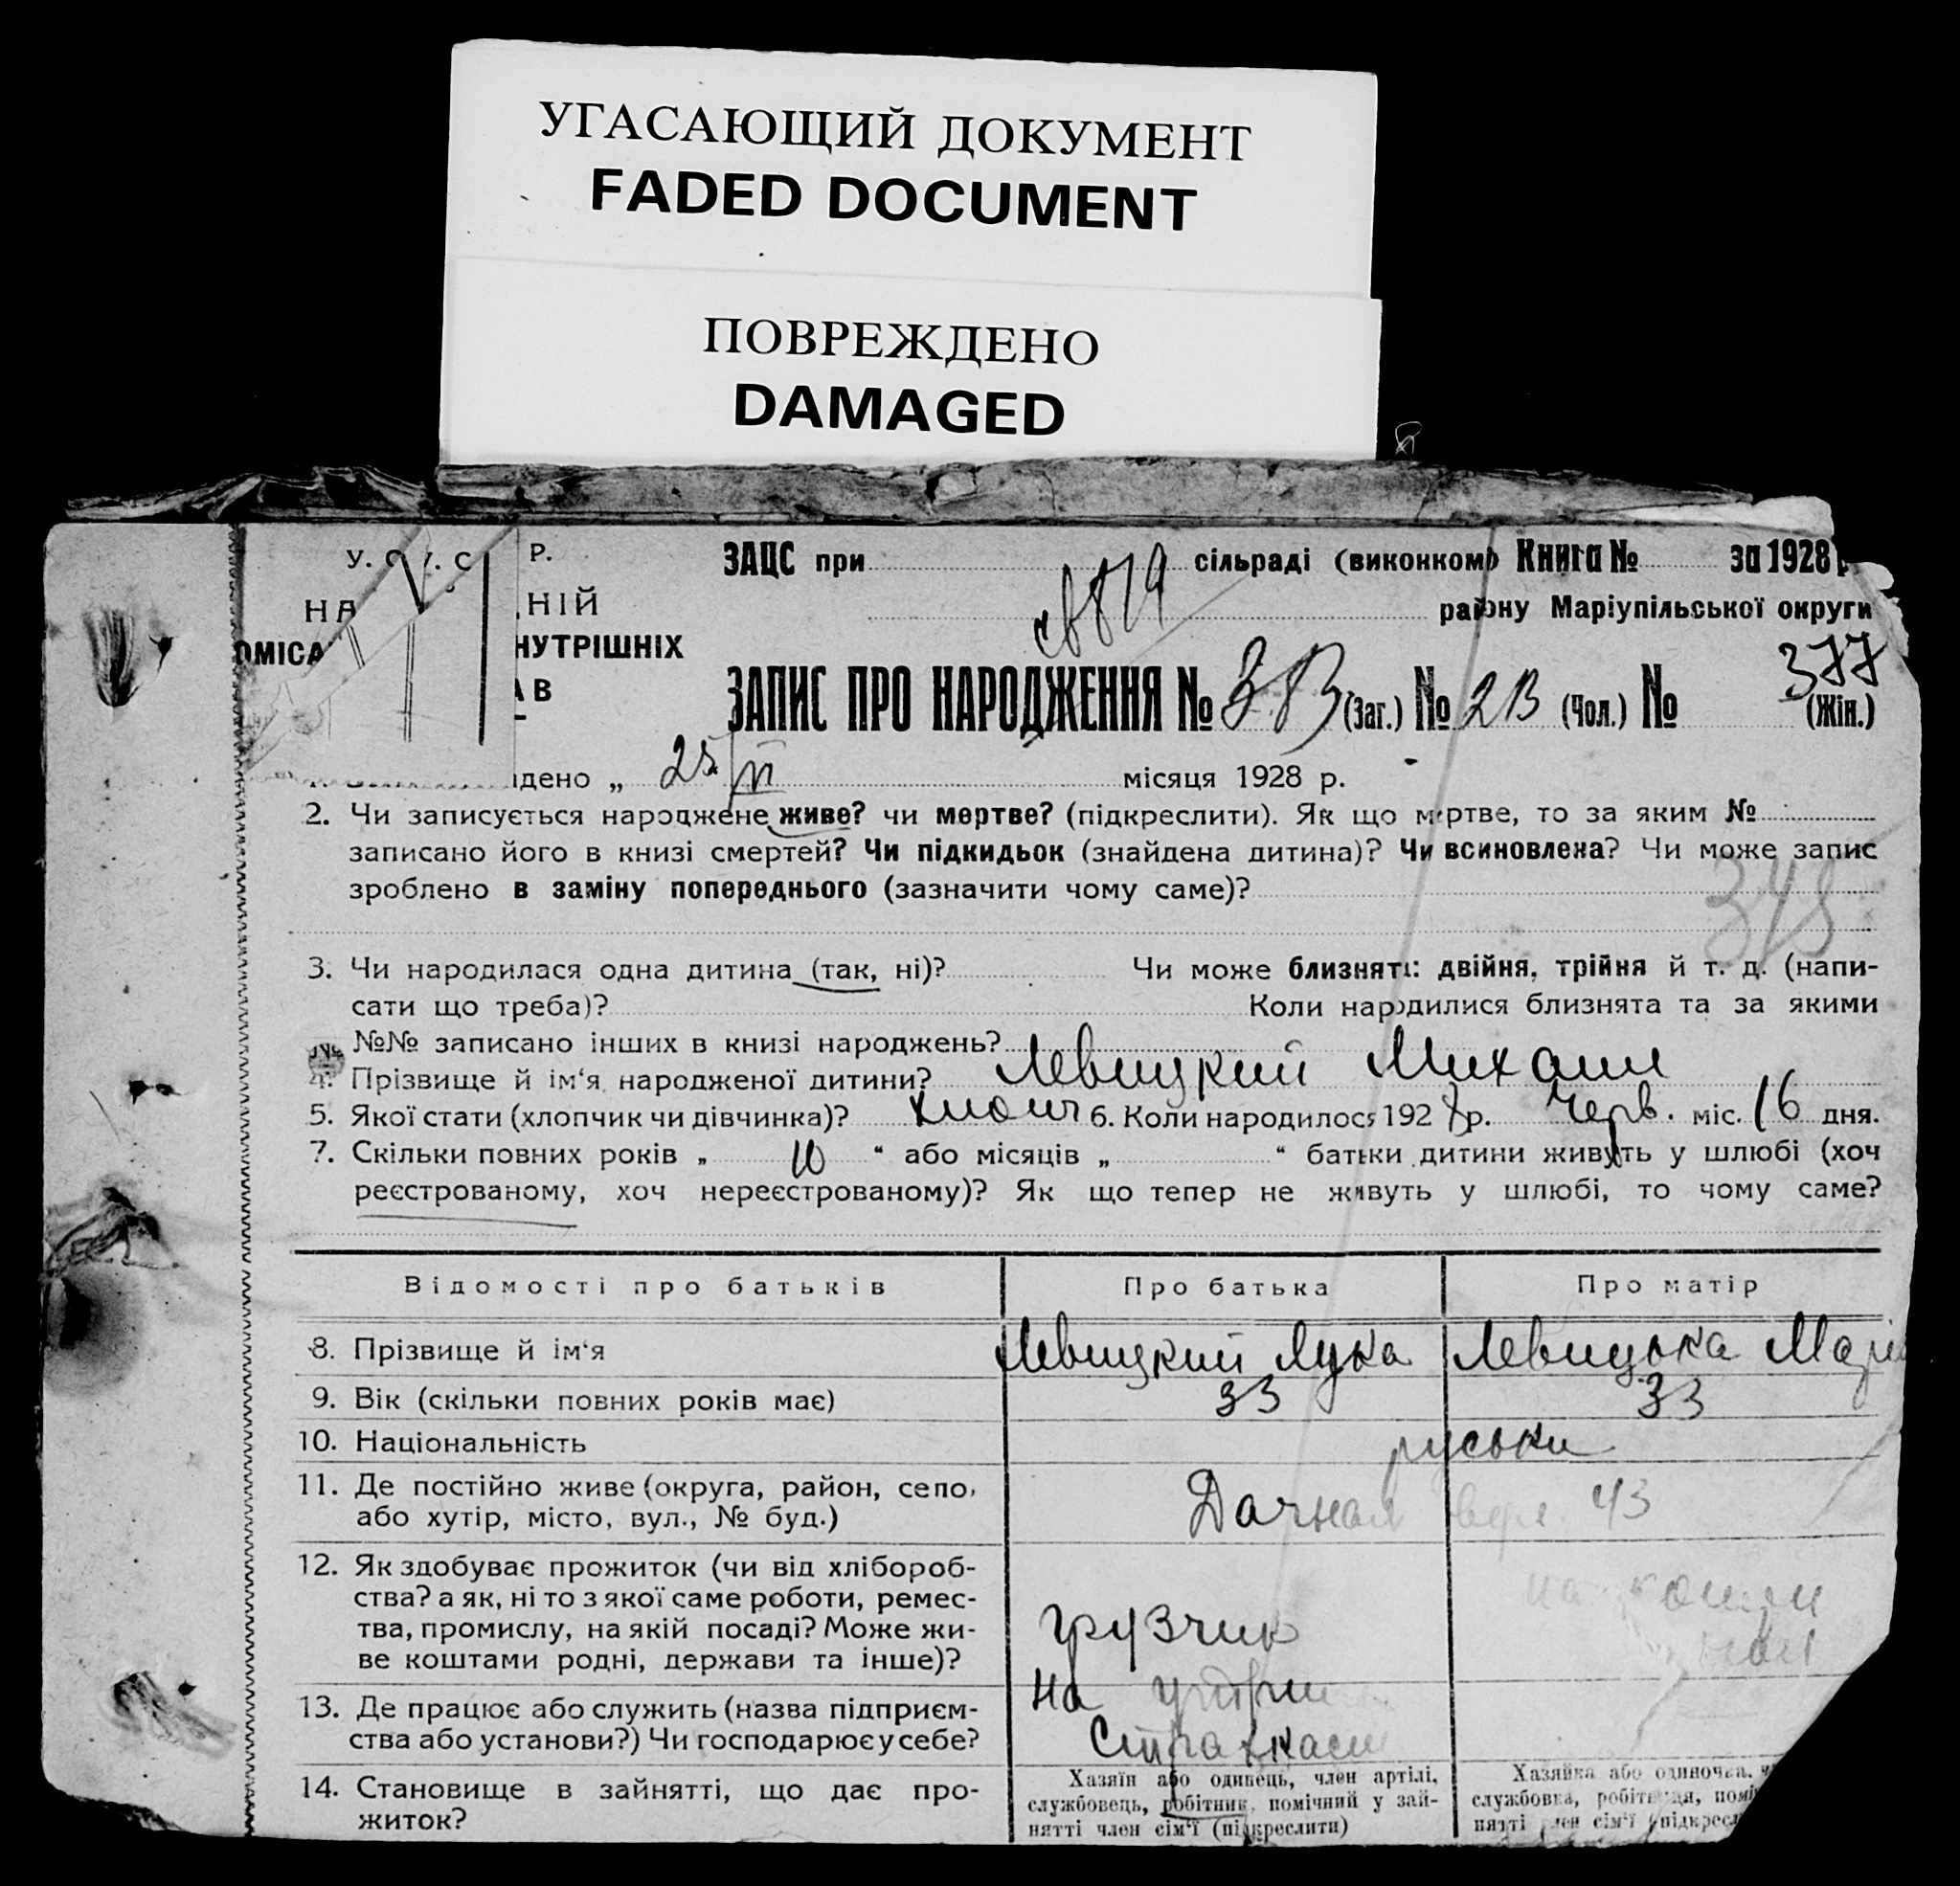 УГАСАЮЩИЙ ДОКУМЕНТ
FADED DOCUMENT
ПОВРЕЖДЕНО
DAMAGED
У. С. У. С Р. ЗАЦС при сільраді (виконком) Книга № за 1928 р
НА НІЙ району Маріупільської округи
ОМІСА НУТРІШНІХ 377
АВ ЗАПИС ПРО НАРОДЖЕННЯ № (Заг.) № (Чол.) № (Жін.)
дено „ 25 VI місяця 1928 р.
2. Чи записується народжене живе? чи мертве? (підкреслити). Як що мертве, то за яким №
записано його в книзі смертей? Чи підкидьок (знайдена дитина)? Чи всиновлена? Чи може запис
зроблено в заміну попереднього (зазначити чому саме)?
3. Чи народилася одна дитина (так, ні)? Чи може близнята: двійня, трійня й т. д. (напи-
сати що треба)? Коли народилися близнята та за якими
№№ записано інших в книзі народжень?
4. Прізвище й ім‘я народженої дитини? Левицкий Михаил
5. Якої стати (хлопчик чи дівчинка)? хлопч 6. Коли народилося 1928 р. Черв. міс. 16 дня.
7. Скільки повних років „ 10 “ або місяців „ “ батьки дитини живуть у шлюбі (хоч
реєстрованому, хоч нереєстрованому)? Як що тепер не живуть у шлюбі, то чому саме?
Відомості про батьків Про батька Про матір
8. Прізвище й ім‘я Левицкий Лука Левицька Марія
9. Вік (скільки повних років має) 33 33
10. Національність руськи
11. Де постійно живе (округа, район, село, Дачная 43
або хутір, місто, вул., № буд.)
12. Як здобуває прожиток (чи від хлібороб-
ства? а як, ні то з якої саме роботи, ремес-
тва, промислу, на якій посаді? Може жи- грузчик
ве коштами родні, держави та інше)?
13. Де працює або служить (назва підприєм- на
ства або установи?) Чи господарює у себе?
14. Становище в зайнятті, що дає про-
житок?
Хазяїн або одинець, член артілі,
службовець, робітник, помічний у зай-
нятті член сім‘ї (підкреслити)
Хазяйка або одиночка, ч
службовка, робітниця, помі
нятті член сім‘ї (підкресл